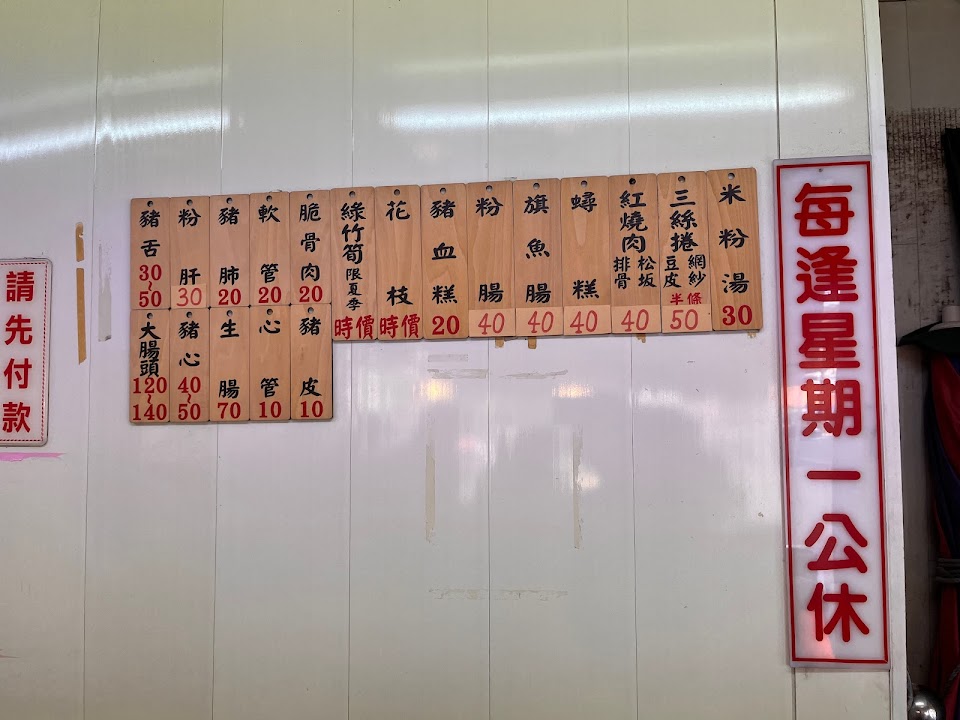 每逢星期一公休
米粉湯 30
三絲捲 網紗 豆皮 半條 50
紅燒肉 松坂 排骨 40
蟳糕 40
旗魚腸 40
粉腸 40
豬血糕 20
花枝 時價
綠竹筍 限夏季 時價
脆骨肉 20
軟管 20
豬肺 20
粉肝 30
豬舌 30~50
豬皮 10
心管 10
生腸 70
豬心 40~50
大腸頭 120~140
請先付款